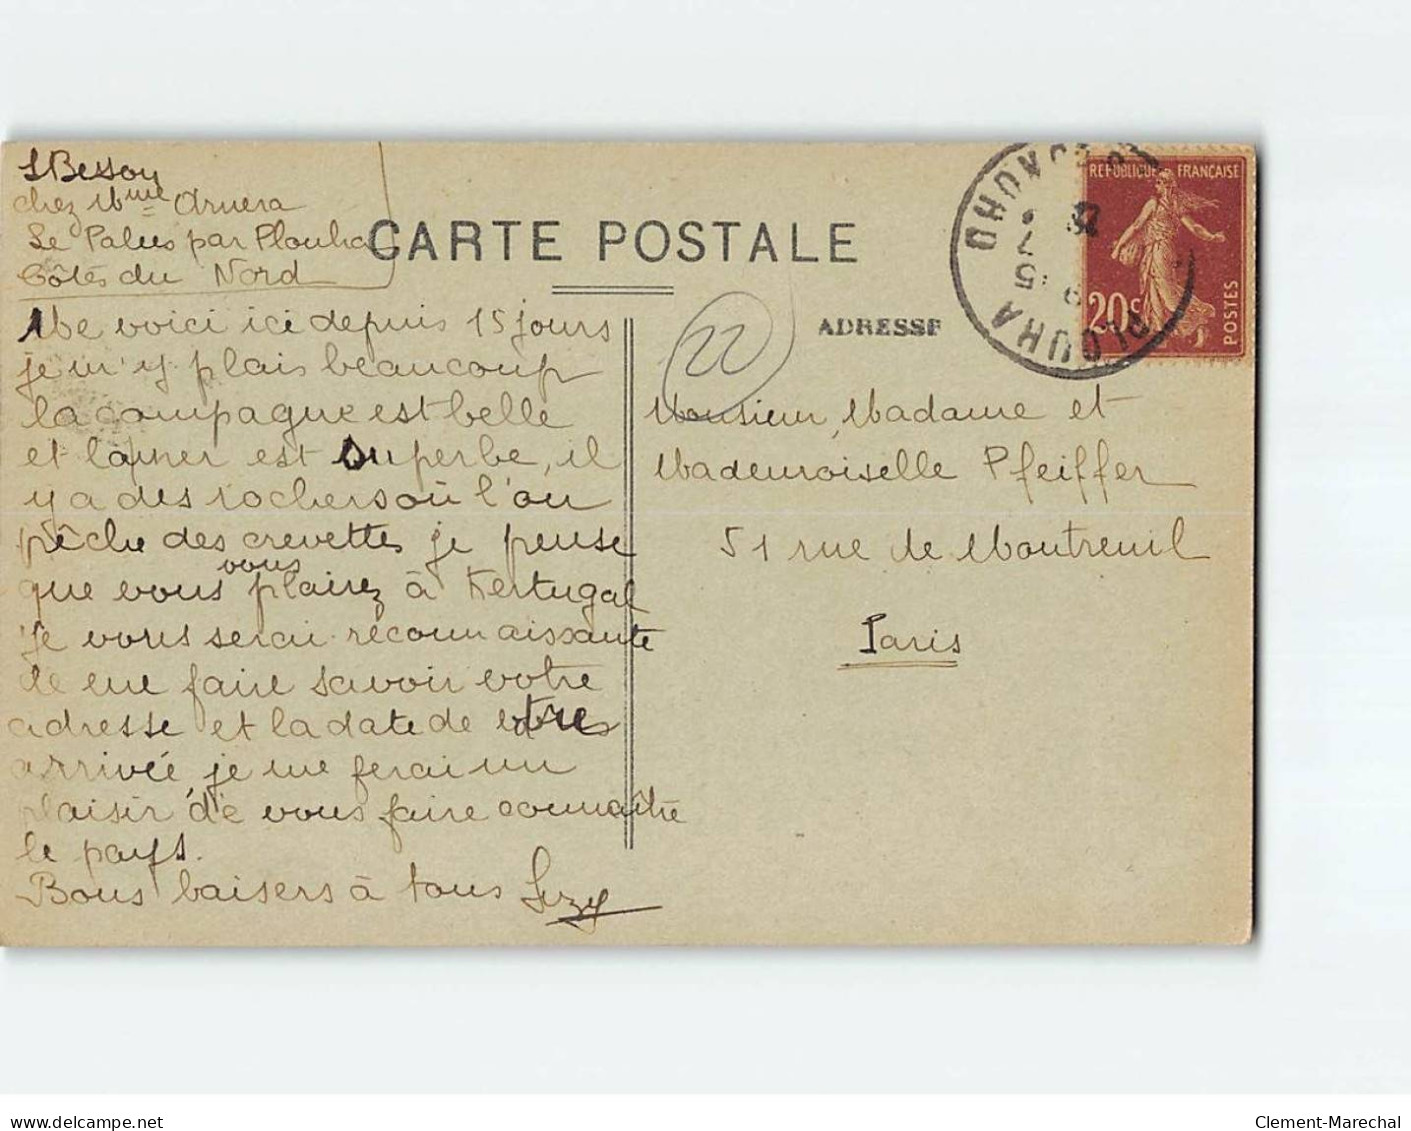 S Besson
chez Mme Arnera
Le Palus par Plouha
Côtes du Nord
CARTE POSTALE
ADRESSE
RÉPUBLIQUE FRANÇAISE
20c
POSTES
PLOUHA
22
Me voici ici depuis 15 jours
je m'y plais beaucoup
la campagne est belle
et la mer est superbe, il
y a des rochers où l'on
pêche des crevettes je pense
que vous vous plairez à Kertugal
je vous serai reconnaissante
de me faire savoir votre
adresse et la date de votre
arrivée, je me ferai un
plaisir de vous faire connaître
le pays.
Bons baisers à tous Suzy
Monsieur, Madame et
Mademoiselle Pfeiffer
51 rue de Montreuil
Paris
www.delcampe.net
Clement-Marechal